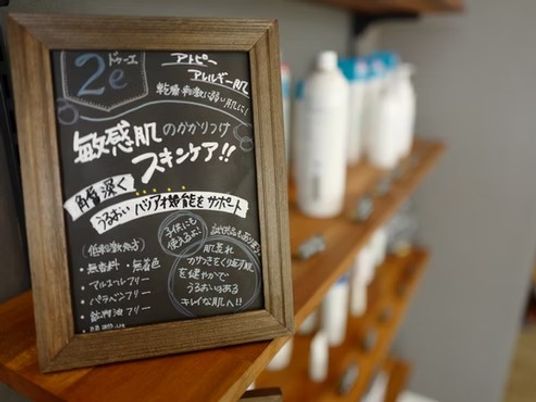 ドゥーエ
2e
アトピー
アレルギー肌
乾燥・刺激に弱い肌に！
敏感肌のかかりつけ
スキンケア!!
角層深く
うるおいバリア機能をサポート
子供にも
使えるよ！
試供品もあります
（低刺激処方）
・無香料・無着色
・アルコールフリー
・パラベンフリー
・鉱物油フリー
肌荒れ
カサつきをくり返す肌
を健やかで
うるおいのある
キレイな肌へ!!